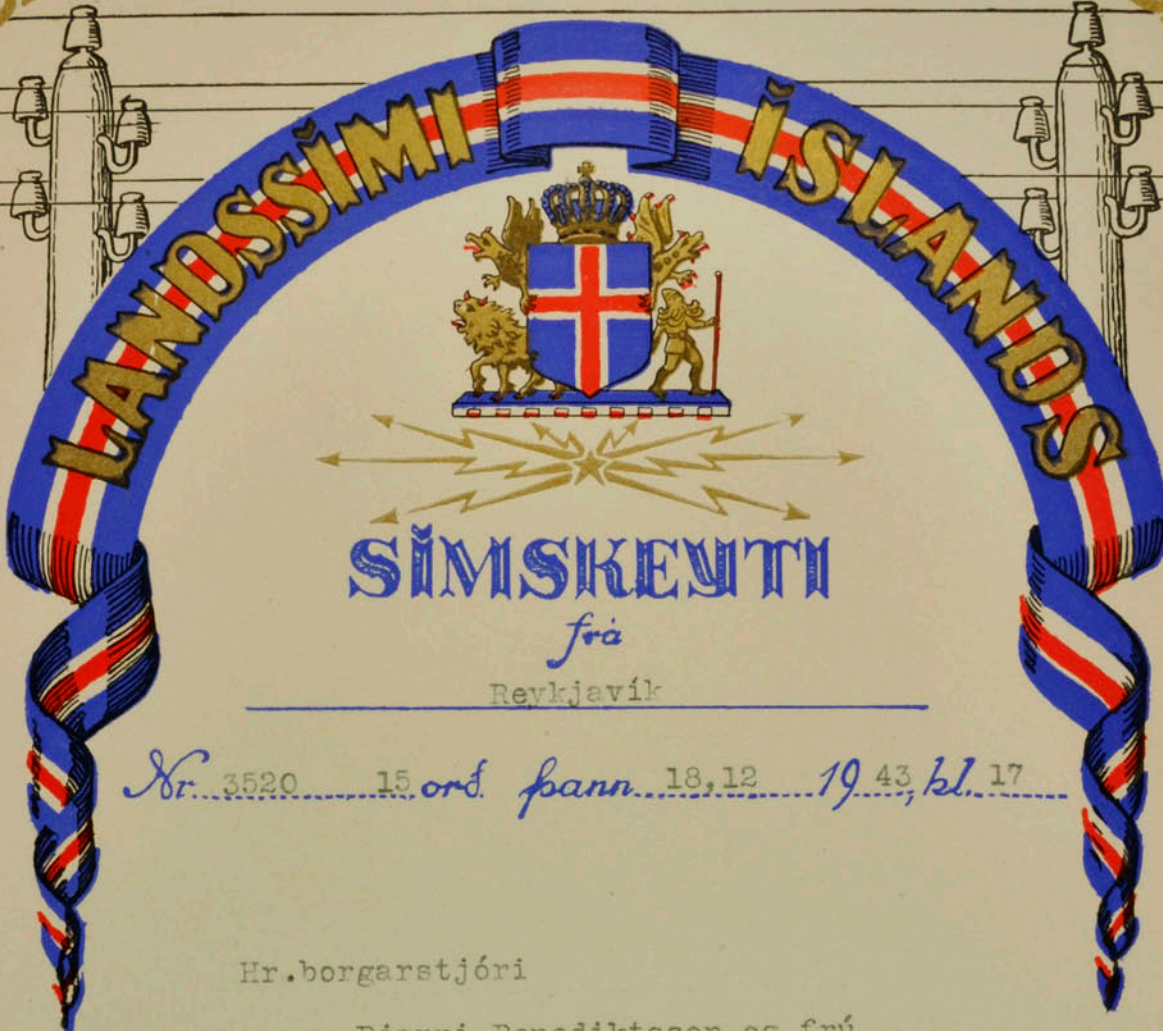 LANDSSÍMI ÍSLANDS
SÍMSKEYTI
frá
Reykjavík
Nr. 3520 15 orð. þann 18,12 1943, kl. 17
Hr.borgarstjóri
Bjarni Benediktsson og frú